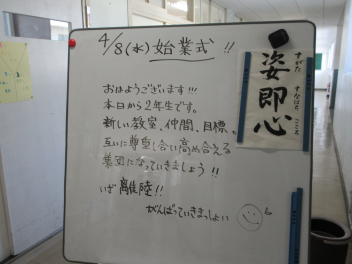 4/8(水) 始業式 !!
おはようございます!!!
本日から2年生です。
新しい教室、仲間、目標。
互いに尊重し合い高め合える
集団になっていきましょう!!
いざ 離陸!!
がんばっていきまっしょい
姿即心
すがた すなはち こころ